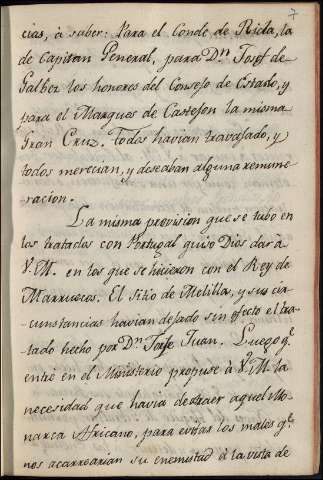 7
cias, à saber: Para el Conde de Ricla, la
de Capitan General, para Dⁿ. Josef de
Galbez los honores del Consejo de Estado, y
para el Marques de Castejon la misma
Gran Cruz. Todos havian travajado, y
todos merecian, y deseaban alguna remune-
racion.
La misma provision que se tubo en
los tratados con Portugal quiso Dios dar à
V. M. en los que se hicieron con el Rey de
Marruecos. El sitio de Melilla, y sus cir-
cunstancias havian dejado sin efecto el tra-
tado hecho por Dⁿ. Jorje Juan. Luego q.ᵉ
entré en el Ministerio propuse à V. M. la
necesidad que havia de atraer aquel Mo-
narca Africano, para evitar los males q.ᵉ
nos acarrearian su enemistad à la vista de